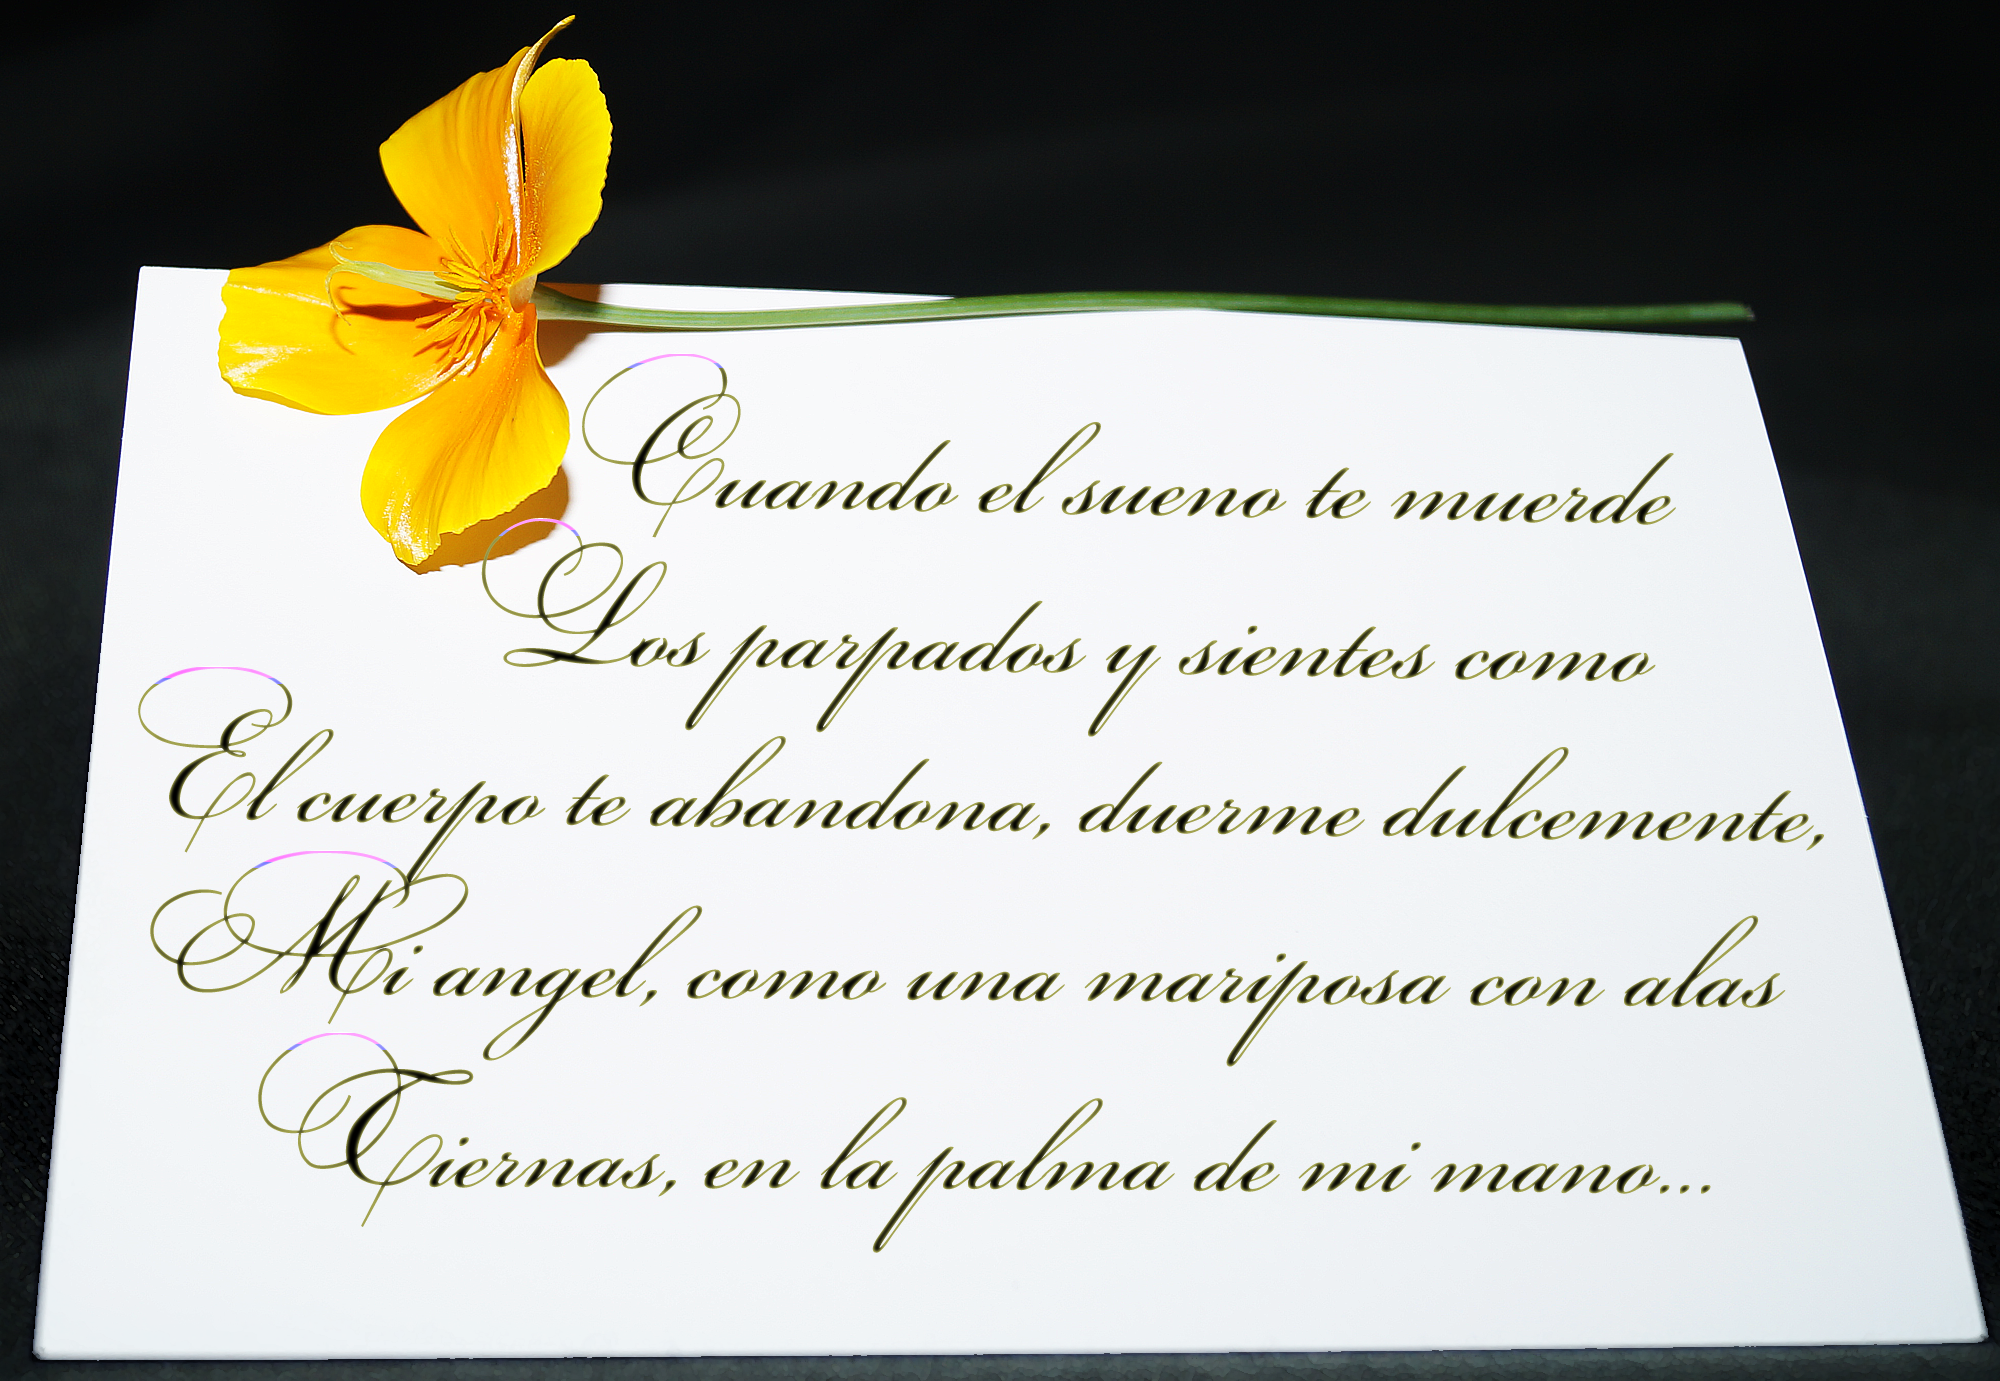 Cuando el sueno te muerde
Los parpados y sientes como
El cuerpo te abandona, duerme dulcemente,
Mi angel, como una mariposa con alas
Tiernas, en la palma de mi mano...